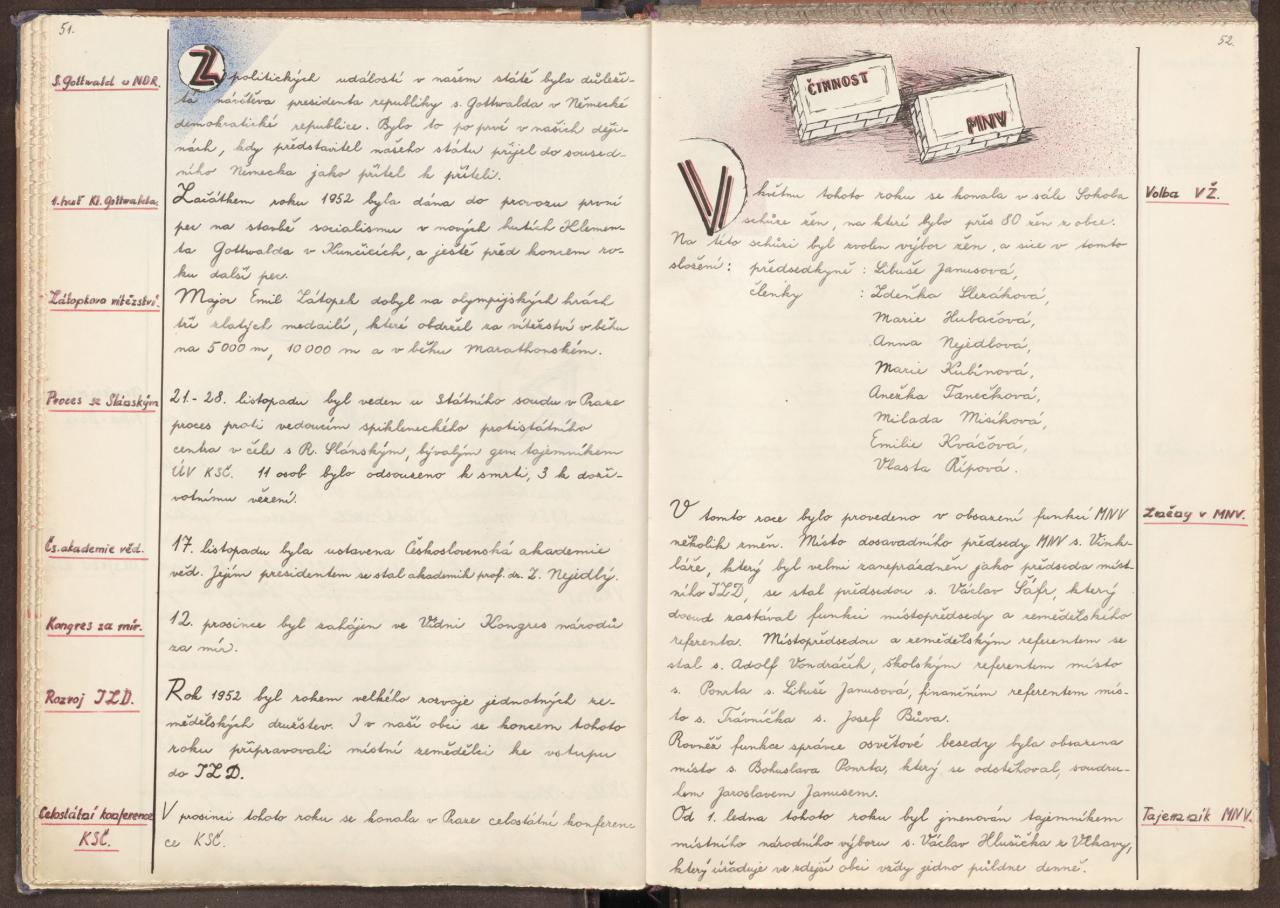 51.
S. Gottwald v NDR.
Z politických událostí v našem státě byla důleži-
tá návštěva presidenta republiky s. Gottwalda v Německé
demokratické republice. Bylo to po prvé v našich ději-
nách, kdy představitel našeho státu přijel do soused-
ního Německa jako přítel k příteli.
1. huť Kl. Gottwalda.
Začátkem roku 1952 byla dána do provozu první
pec na stavbě socialismu v nových hutích Klemen-
ta Gottwalda v Kunčicích, a ještě před koncem ro-
ku další pec.
Zátopkova vítězství.
Major Emil Zátopek dobyl na olympijských hrách
tří zlatých medailí, které obdržel za vítězství v běhu
na 5 000 m, 10 000 m a v běhu Marathonském.
Proces se Slánským
21.- 28. listopadu byl veden u Státního soudu v Praze
proces proti vedoucím spikleneckého protistátního
centra v čele s R. Slánským, bývalým gen. tajemníkem
ÚV KSČ. 11 osob bylo odsouzeno k smrti, 3 k doži-
votnímu vězení.
Čs. akademie věd.
17. listopadu byla ustavena Československá akademie
věd. Jejím presidentem se stal akademik prof. dr. Z. Nejedlý.
Kongres za mír.
12. prosince byl zahájen ve Vídni Kongres národů
za mír.
Rozvoj JZD.
Rok 1952 byl rokem velkého rozvoje jednotných ze-
mědělských družstev. I v naší obci se koncem tohoto
roku připravovali místní zemědělci ke vstupu
do JZD.
Celostátní konference
KSČ.
V prosinci tohoto roku se konala v Praze celostátní konferen
ce KSČ.
52.
ČINNOST
MNV
V květnu tohoto roku se konala v sále Sokola
schůze žen, na které bylo přes 80 žen z obce.
Na této schůzi byl zvolen výbor žen, a sice v tomto
složení: předsedkyně: Libuše Janusová,
členky : Zdeňka Slezáková,
Marie Hubačová,
Anna Nejedlová,
Marie Kubínová,
Anežka Tanečková,
Milada Misíková,
Emilie Kváčová,
Vlasta Řípová.
Volba VŽ.
V tomto roce bylo provedeno v obsazení funkcí MNV
několik změn. Místo dosavadního předsedy MNV s. Vink-
láře, který byl velmi zaneprázdněn jako předseda míst-
ního JZD, se stal předsedou s. Václav Šáfr, který
dosud zastával funkci místopředsedy a zemědělského
referenta. Místopředsedou a zemědělským referentem se
stal s. Adolf Vondráčik, školským referentem místo
s. Ponrta s. Libuše Janusová, finančním referentem mís-
to s. Trávníčka s. Josef Bůva.
Rovněž funkce správce osvětové besedy byla obsazena
místo s. Bohuslava Ponrta, který se odstěhoval, soudru-
hem Jaroslavem Janusem.
Změny v MNV.
Od 1. ledna tohoto roku byl jmenován tajemníkem
místního národního výboru s. Václav Hlušička z Vlkavy,
který úřaduje ve zdejší obci vždy jedno půldne denně.
Tajemník MNV.